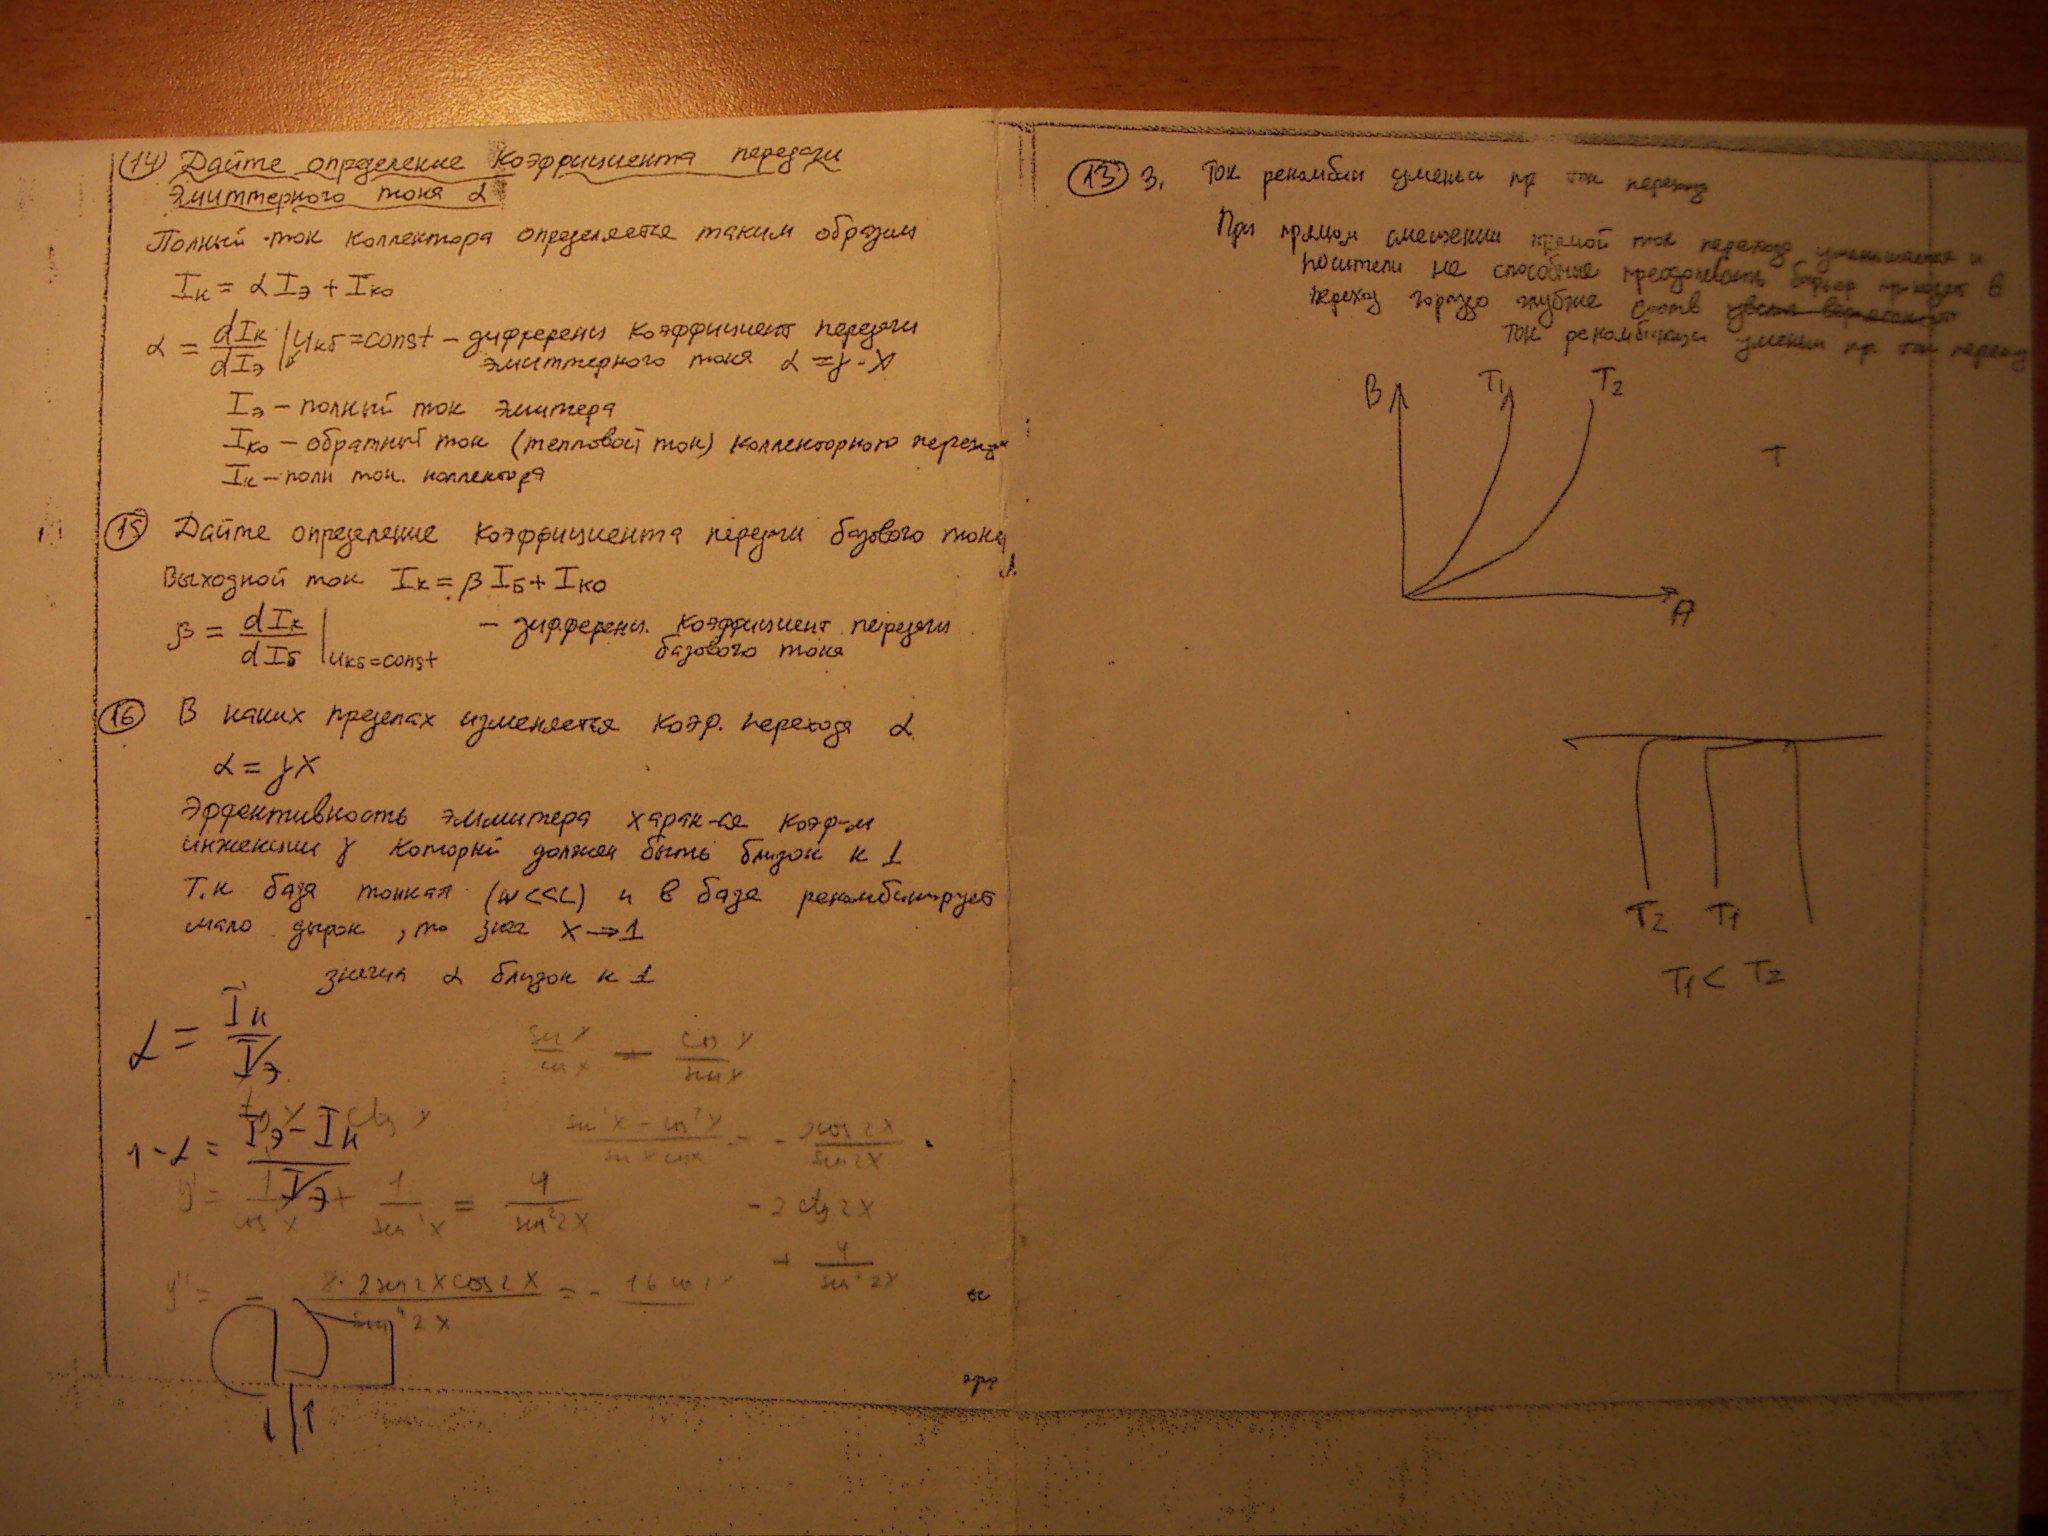 (14) Дайте определение коэффициента передачи
эмиттерного тока α
Полный ток коллектора определяется таким образом
Iк = αIэ + Iко
α = dIк/dIэ | Uкб = const – дифференц коэффициент передачи
эмиттерного тока α = γ·χ
Iэ – полный ток эмитера
Iко – обратный ток (тепловой ток) коллекторного перехода
Iк – полн ток. коллектора
(15) Дайте определение коэффициента передачи базового тока
Выходной ток Iк = βIБ + Iко
β = dIк/dIБ | Uкб = const – дифференц. коэффициент передачи
базового тока
(16) В каких пределах изменяется коэф. перехода α
α = γχ
Эффективность эммитера харак-ся коэф-м
инжекции γ который должен быть близок к 1
Т.к база тонкая (w<<L) и в базе рекомбинирует
мало дырок, то знач χ → 1
значия α близок к 1
α = Iк/Iэ
sin x/cos x – cos x/sin x
tg x ctg x
1-α = Iэ – Iк/Iэ
sin²x – cos²x/sin x cos x = - 2cos 2x/sin 2x
y' = 1/cos²x + 1/sin²x = 4/sin²2x
- 2 ctg 2x
+ 4/sin²2x
y'' = - 8·2sin2xcos2x/sin⁴2x = - 16 cos
(13) 3. Ток рекомбин уменьш пр ток переход
При прямом смещении прямой ток перехода уменьшается и
носители не способные преодолевать барьер в
переход гораздо глубже
ток рекомбинации уменьш пр. ток переход
B T1 T2
T
A
T2 T1
T1 < T2